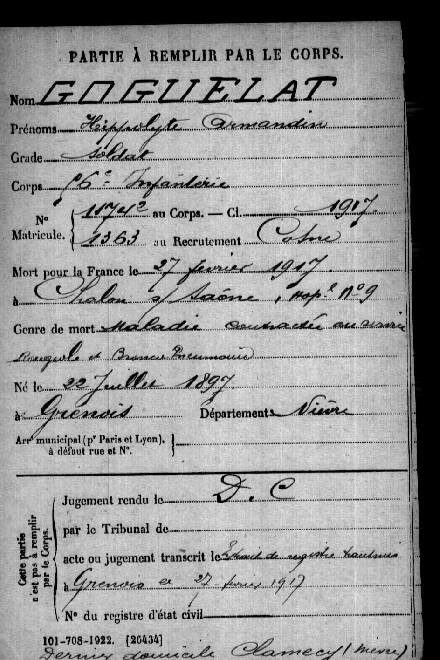 PARTIE À REMPLIR PAR LE CORPS.
Nom GOGUELAT
Prénoms Hippolyte Armandin
Grade Soldat
Corps 56e Infanterie
N° Matricule. { 11742 au Corps. — Cl. 1917
1363 au Recrutement Cosne
Mort pour la France le 27 février 1917
à Chalon s/ Saône, hop.l N°9
Genre de mort Maladie contractée au service
Rougeole et Bronco Pneumonie
Né le 22 Juillet 1897
à Grenois Département Nièvre
Arrt municipal (pr Paris et Lyon), à défaut rue et N°. }
Cette partie n'est pas à remplir par le Corps.
Jugement rendu le D. C
par le Tribunal de
acte ou jugement transcrit le Extrait de registre transmis
à Grenois le 27 février 1917
N° du registre d'état civil
101-708-1922. [26434]
Dernier domicile Clamecy (Nièvre)